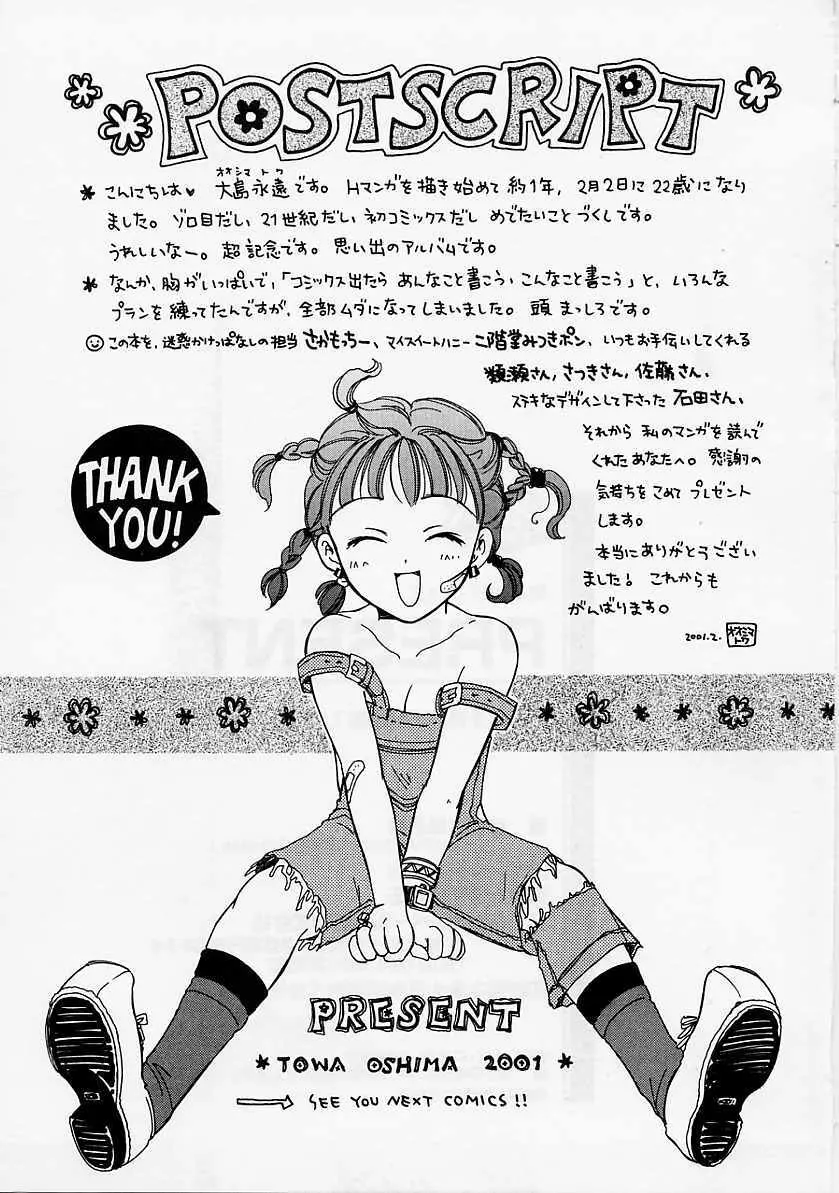 POSTSCRIPT
オオシマ トワ
* こんにちは♥ 大島永遠です。Hマンガを描き始めて約1年, 2月2日に22歳になり
ました。ゾロ目だし, 21世紀だし, 初コミックスだし めでたいことづくしです。
うれしいなー。超記念です。思い出のアルバムです。
* なんか、胸がいっぱいで,「コミックス出たら あんなこと書こう, こんなこと書こう」と, いろんな
プランを練ってたんですが, 全部ムダになってしまいました。頭 まっしろです。
☺ この本を, 迷惑かけっぱなしの担当 さかもっちー、マイスイートハニー 二階堂みつきポン、いつもお手伝いしてくれる
類瀬さん, さつきさん, 佐藤さん、
ステキなデザインして下さった 石田さん、
それから 私のマンガを読んで
くれたあなたへ。感謝の
気持ちをこめて プレゼント
します。
本当にありがとうござい
ました! これからも
がんばります。
2001.2. オオシマ
トワ
THANK
YOU!
PRESENT
* TOWA OSHIMA 2001 *
→ SEE YOU NEXT COMICS!!